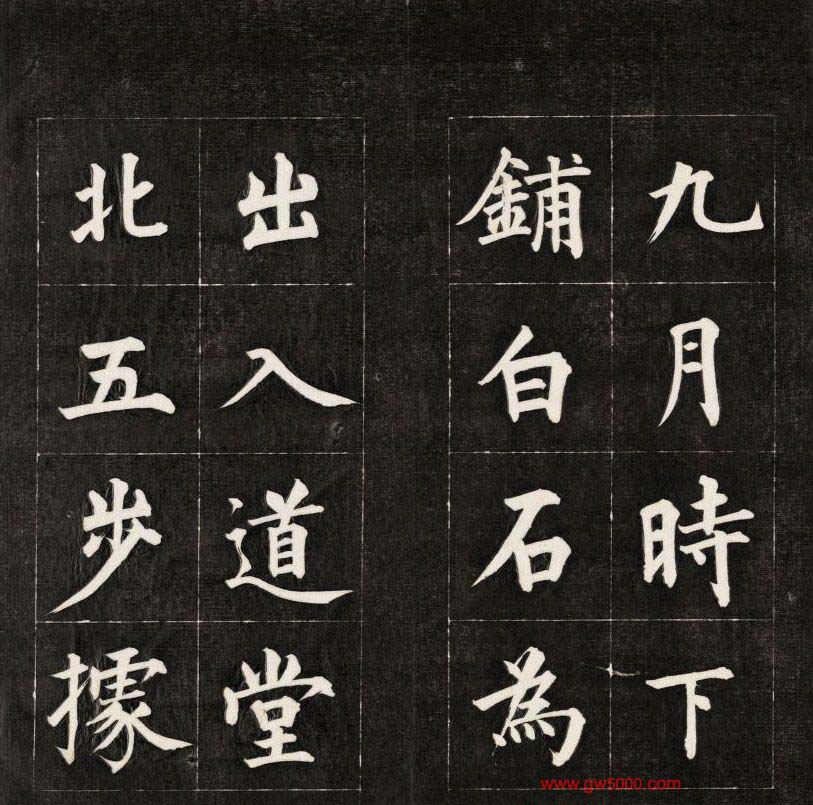 九月時下
鋪白石為
出入道堂
北五步據
www.gw5000.com